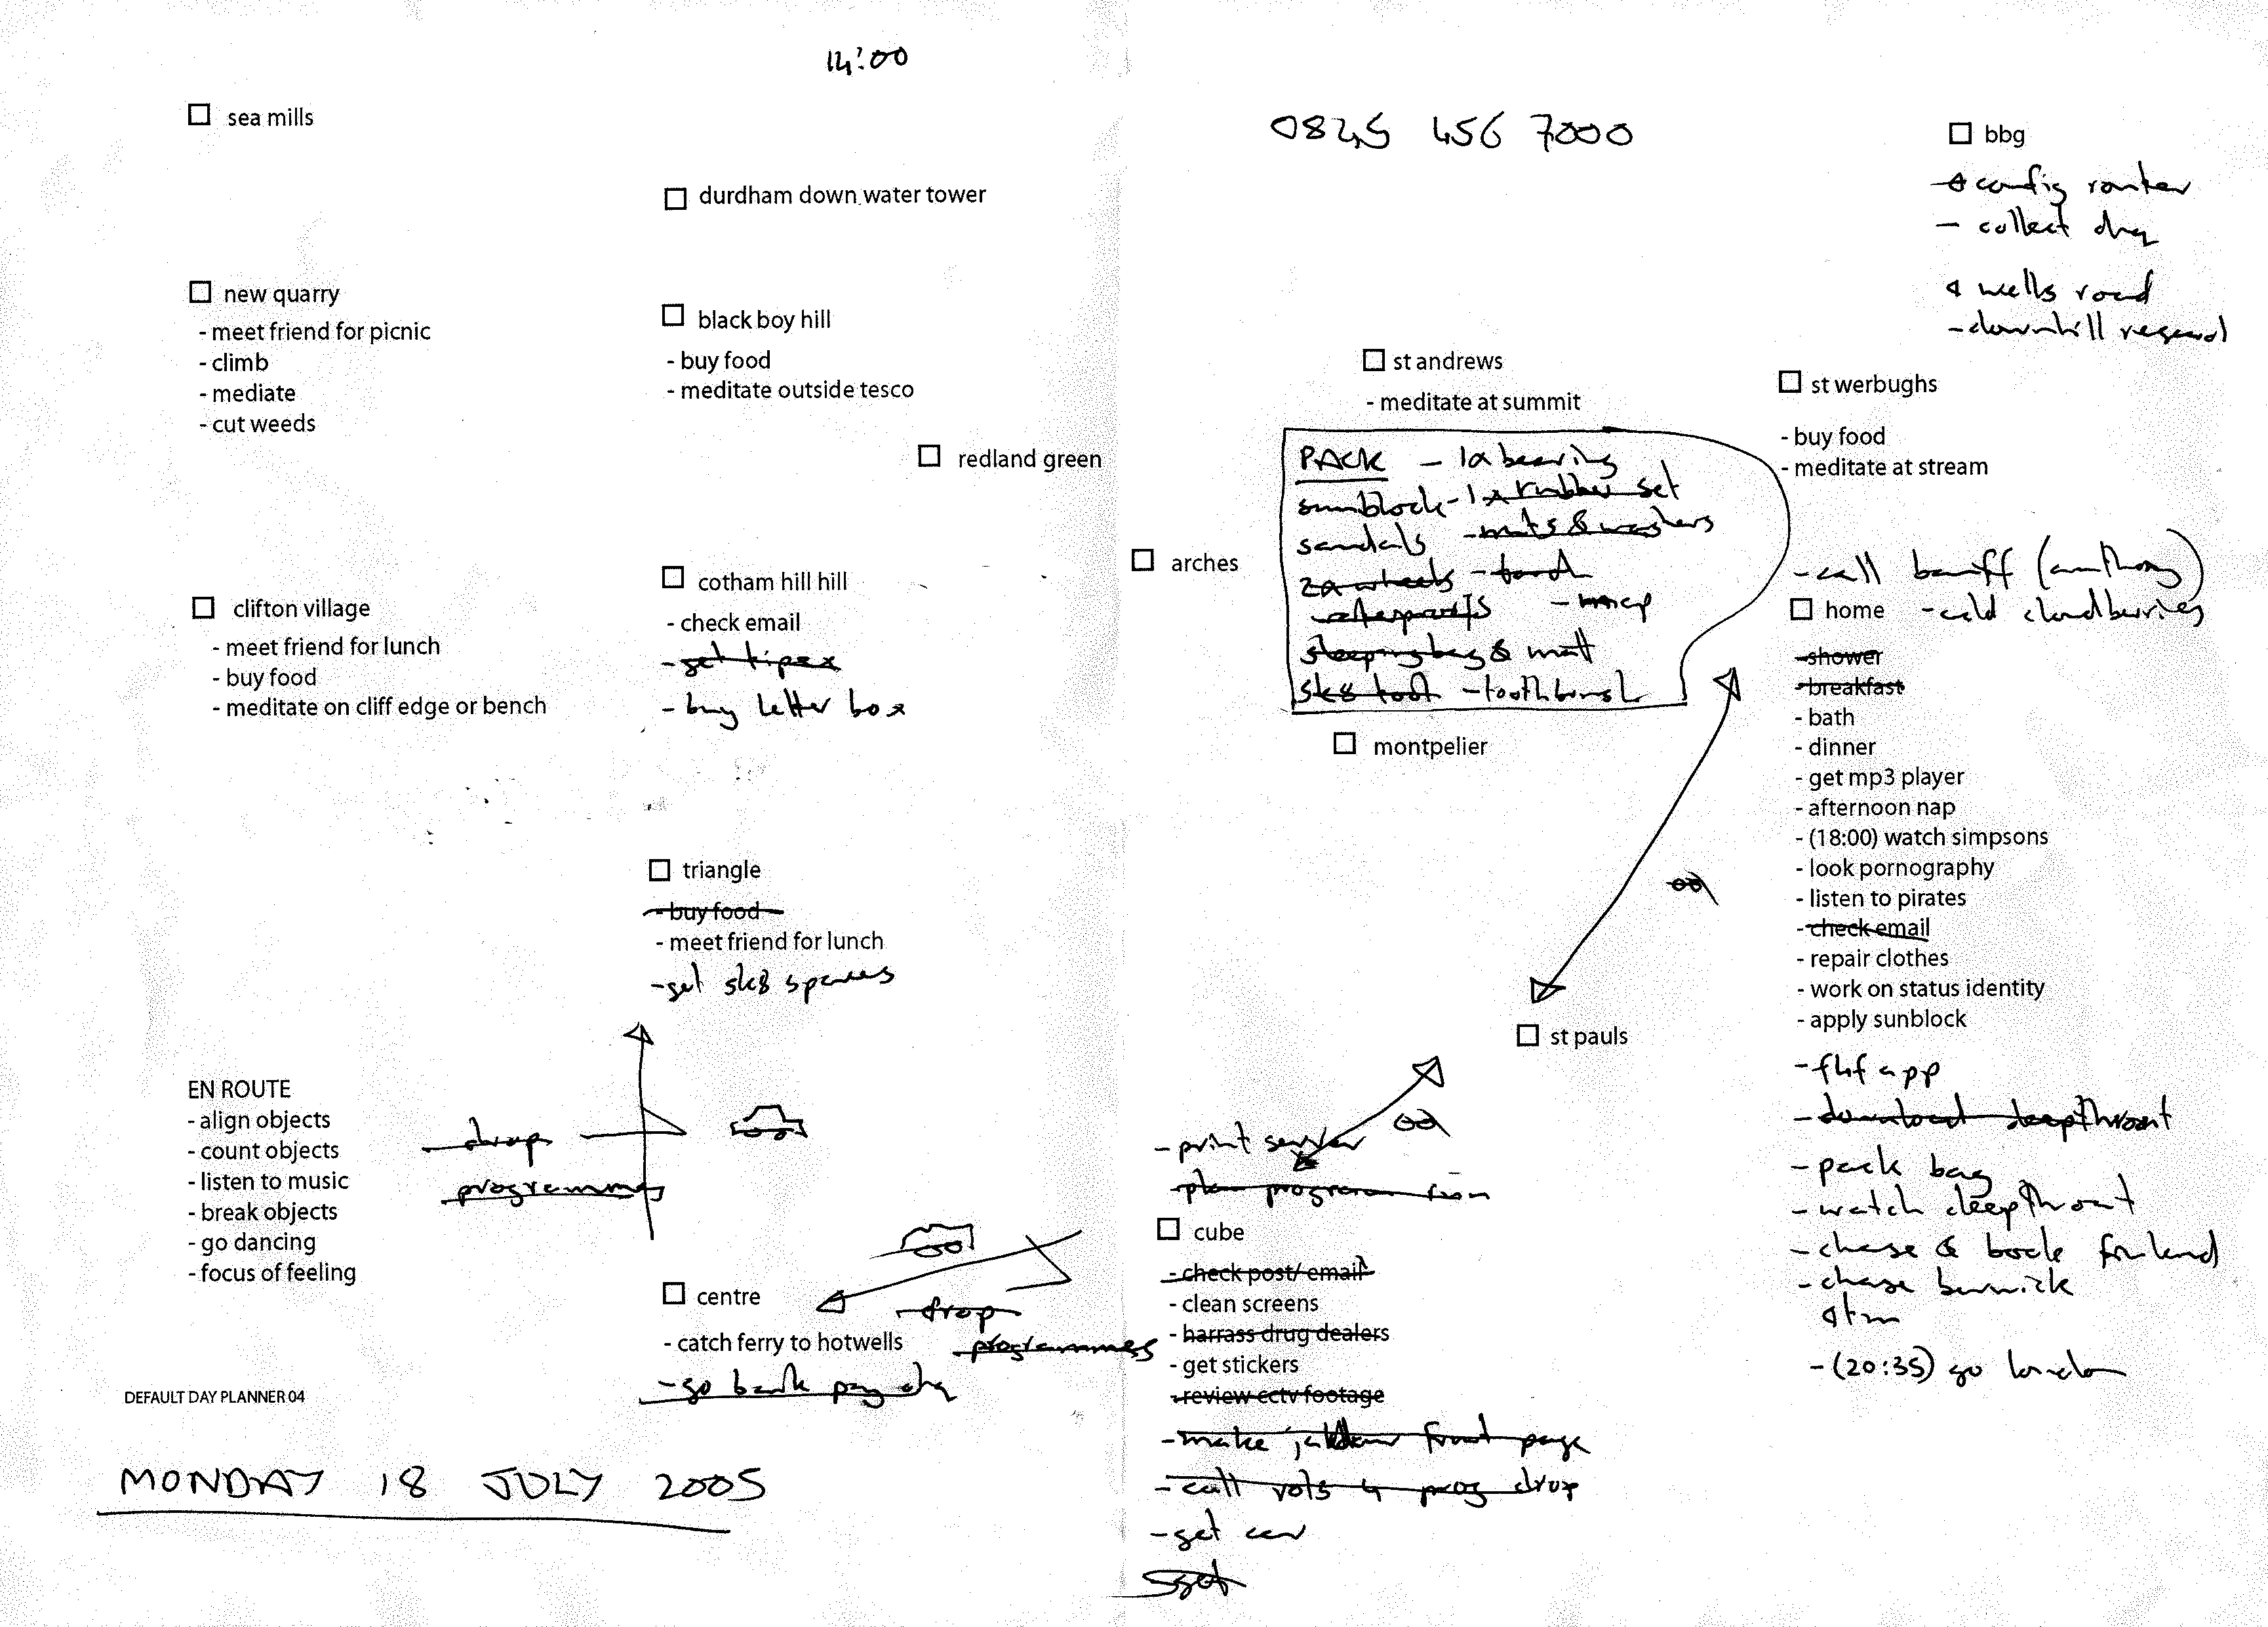 14:00
sea mills
durdham down water tower
new quarry
- meet friend for picnic
- climb
- mediate
- cut weeds
black boy hill
- buy food
- meditate outside tesco
redland green
clifton village
- meet friend for lunch
- buy food
- meditate on cliff edge or bench
cotham hill hill
- check email
- get tipex
- buy letter box
triangle
- buy food
- meet friend for lunch
- get sk8 spares
EN ROUTE
- align objects
- count objects
- listen to music
- break objects
- go dancing
- focus of feeling
drop
programmes
centre
- catch ferry to hotwells
- go bank pay chq
drop
programmes
DEFAULT DAY PLANNER 04
MONDAY 18 JULY 2005
0845 456 7000
bbg
config router
- collect chq
wells road
- downhill
st andrews
- meditate at summit
PACK - 1x bearing
sunblock - 1x rubber set
sandals - nuts & washers
2x wheels - torch
- map
sleeping bag & mat
sk8 tool - toothbrush
arches
montpelier
st werbughs
- buy food
- meditate at stream
- call banff (anthony)
home
- shower
- breakfast
- bath
- dinner
- get mp3 player
- afternoon nap
- (18:00) watch simpsons
- look pornography
- listen to pirates
- check email
- repair clothes
- work on status identity
- apply sunblock
- fhf app
- download deepthroat
- pack bag
- watch deepthroat
- chase & book
- chase berwick
- (20:35) go london
st pauls
- print server
cube
- check post/ email
- clean screens
- harrass drug dealers
- get stickers
- review cctv footage
- make front page
- call vols 4 prog drop
- get car